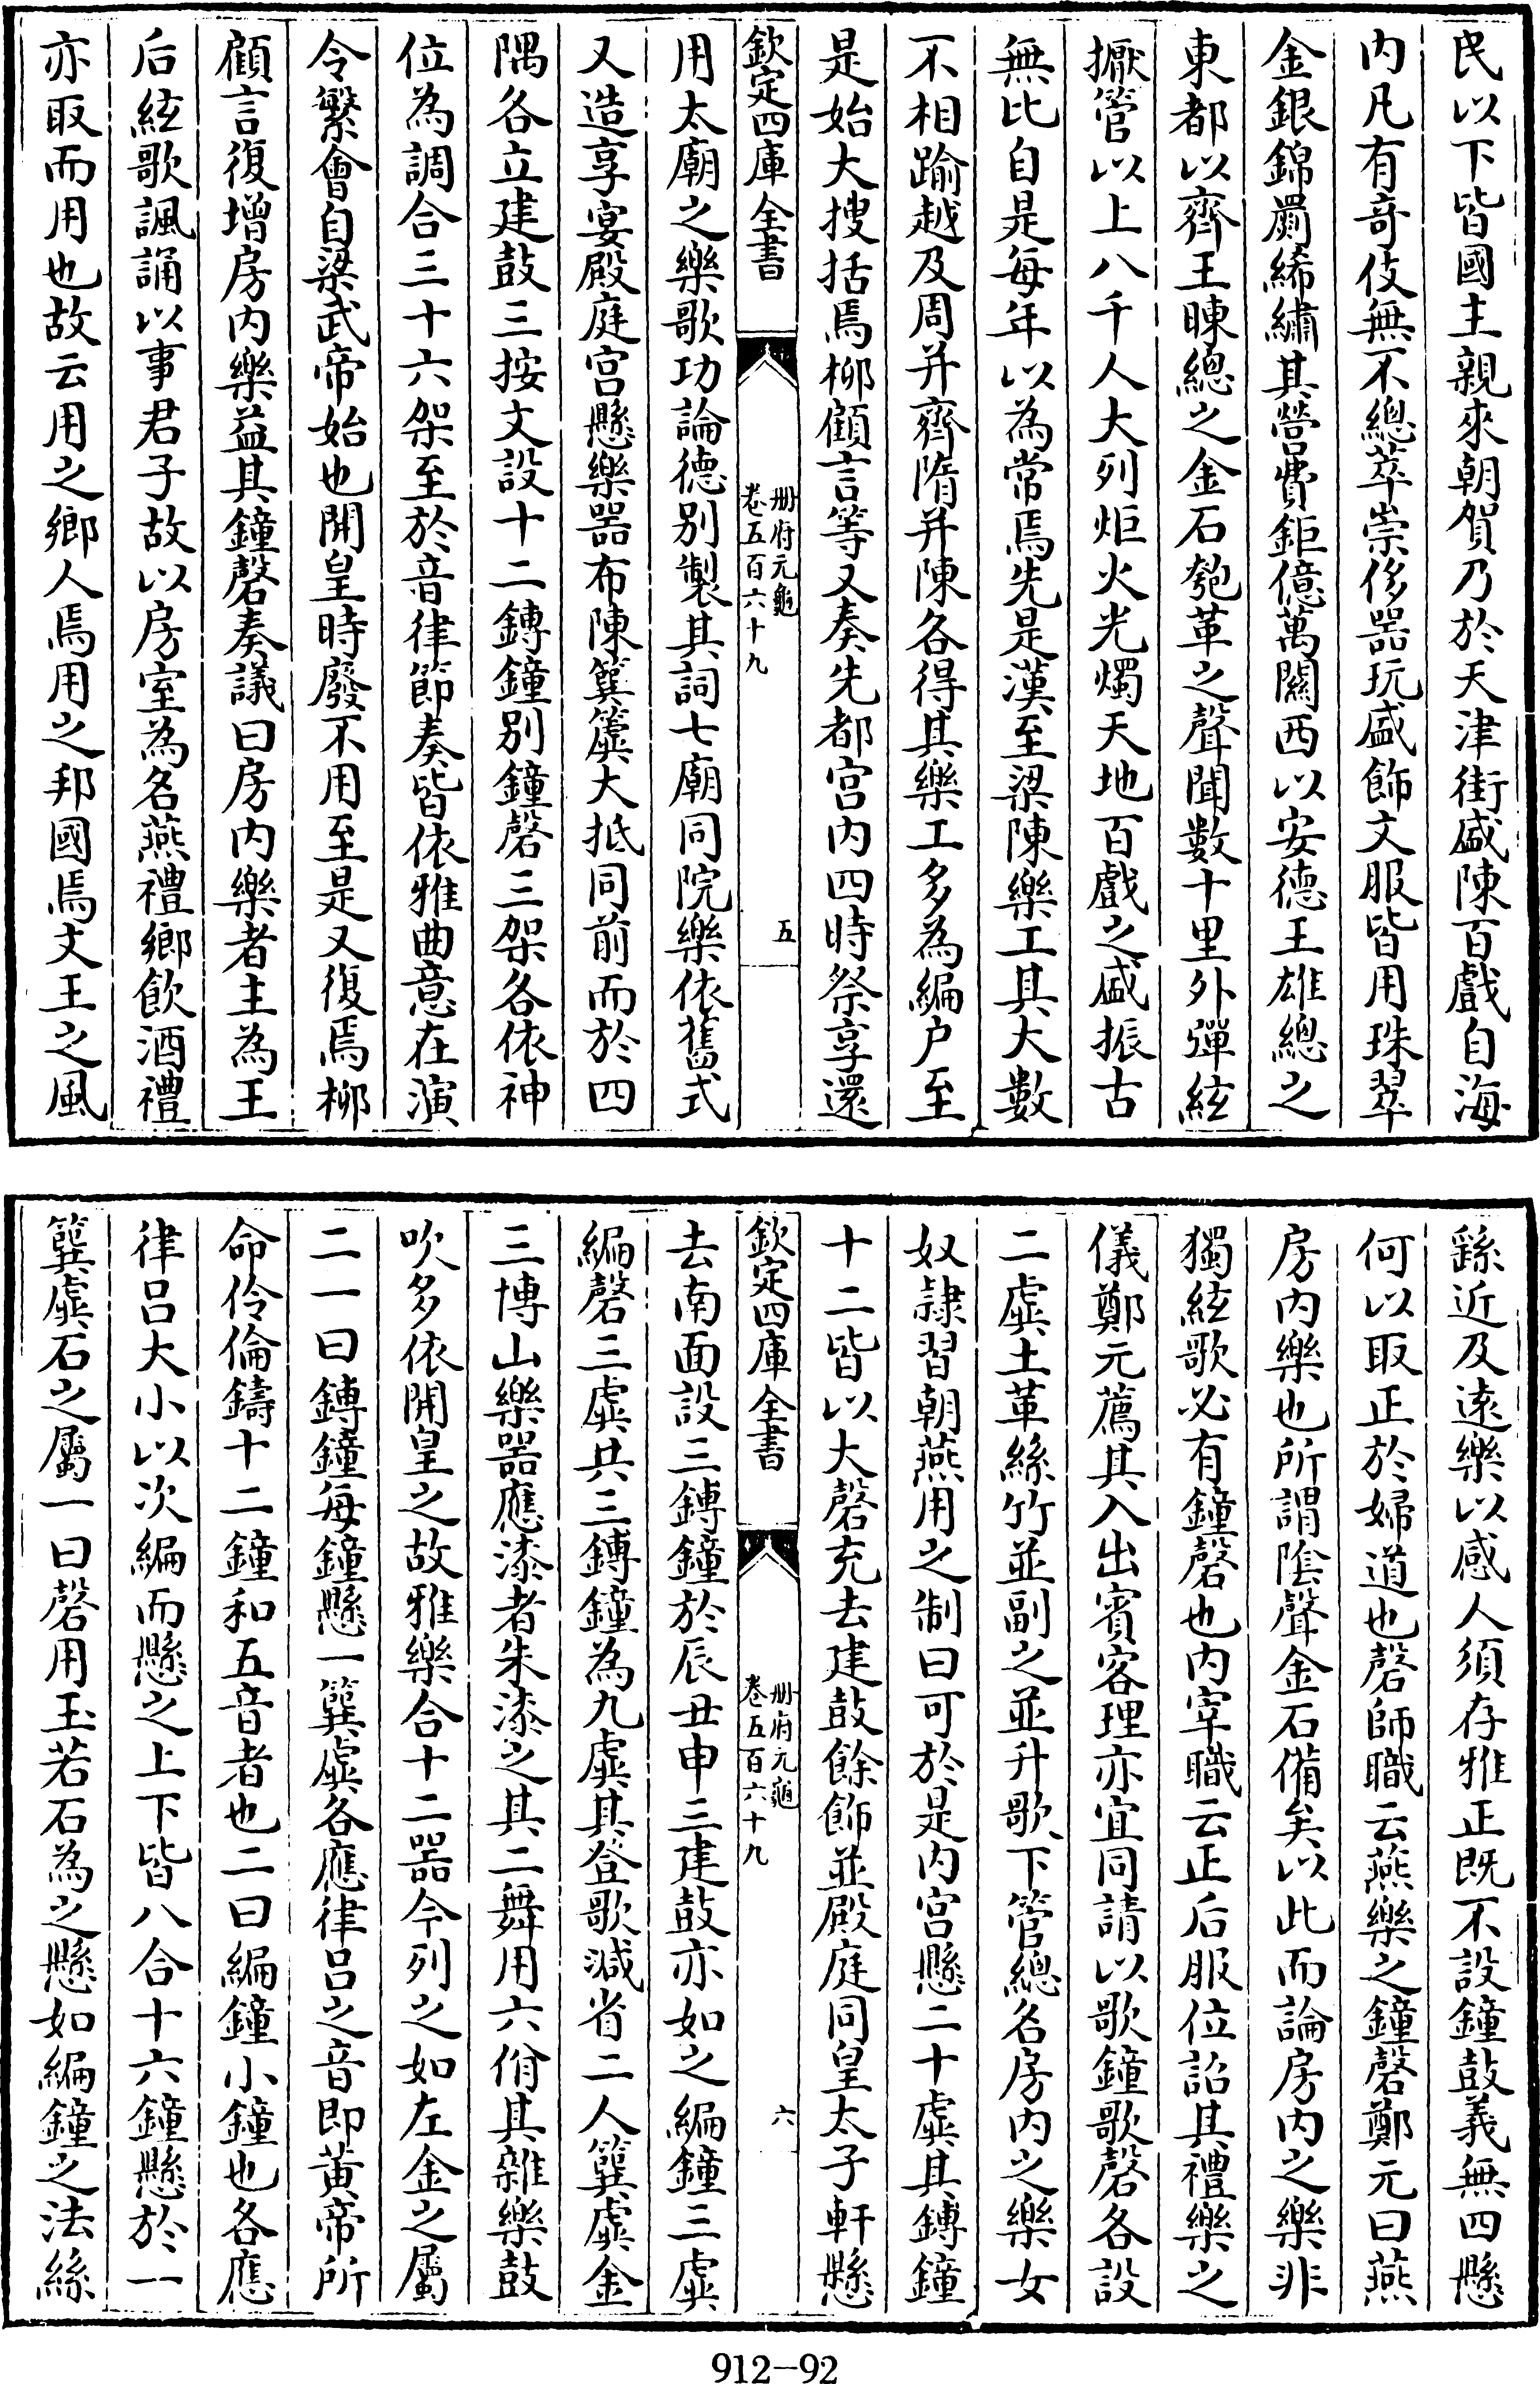 民以下皆國主親來朝賀乃於天津街盛陳百戲自海
内凡有竒伎無不總萃崇侈器玩盛飾文服皆用珠翠
金銀錦罽絺繡其營費鉅億萬關西以安德王雄總之
東都以齊王暕總之金石匏革之聲聞數十里外彈絃
擫管以上八千人大列炬火光燭天地百戲之盛振古
無比自是每年以為常焉先是漢至梁陳樂工其大數
不相踰越及周并齊隋并陳各得其樂工多為編户至
是始大搜括焉柳顧言等又奏先都宫内四時祭享還
欽定四庫全書
册府元龜
卷五百六十九
五
用太廟之樂歌功論德别製其詞七廟同院樂依舊式
又造享宴殿庭宫懸樂器布陳簨簴大抵同前而於四
隅各立建鼓三按文設十二鎛鐘别鐘磬三架各依神
位為調合三十六架至於音律節奏皆依雅曲意在演
令繁會自梁武帝始也開皇時廢不用至是又復焉柳
顧言復增房内樂益其鐘磬奏議曰房内樂者主為王
后絃歌諷誦以事君子故以房室為名燕禮鄉飲酒禮
亦取而用也故云用之鄉人焉用之邦國焉文王之風
繇近及逺樂以感人須存雅正既不設鐘鼓義無四懸
何以取正於婦道也磬師職云燕樂之鐘磬鄭元曰燕
房内樂也所謂隂聲金石備矣以此而論房内之樂非
獨絃歌必有鐘磬也内宰職云正后服位詔其禮樂之
儀鄭元薦其入出賓客理亦宜同請以歌鐘歌磬各設
二虡土革絲竹並副之並升歌下管總名房内之樂女
奴隸習朝燕用之制曰可於是内宫懸二十虡其鎛鐘
十二皆以大磬充去建鼓餘飾並殿庭同皇太子軒懸
欽定四庫全書
册府元龜
卷五百六十九
六
去南面設三鎛鐘於辰丑申三建鼓亦如之編鐘三虡
編磬三虡共三鎛鐘為九虡其登歌減省二人簨虡金
三博山樂器應漆者朱漆之其二舞用六佾其雜樂鼓
吹多依開皇之故雅樂合十二器今列之如左金之屬
二一曰鎛鐘每鐘懸一簨虡各應律吕之音即黄帝所
命伶倫鑄十二鐘和五音者也二曰編鐘小鐘也各應
律吕大小以次編而懸之上下皆八合十六鐘懸於一
簨虡石之屬一曰磬用玉若石為之懸如編鐘之法絲
912-92